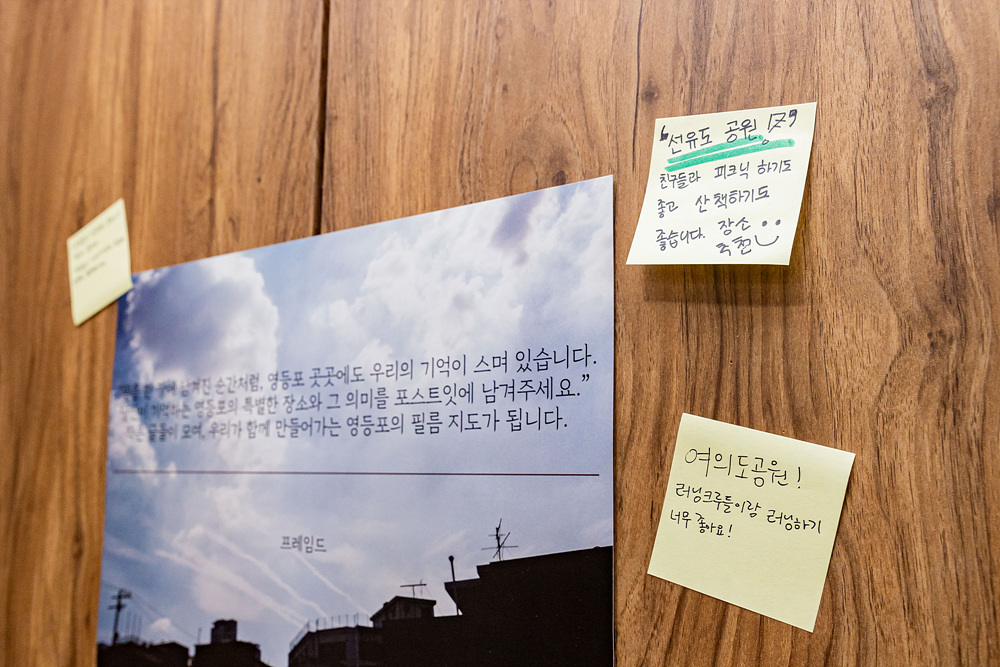 남겨진 순간처럼, 영등포 곳곳에도 우리의 기억이 스며 있습니다.
기억하는 영등포의 특별한 장소와 그 의미를 포스트잇에 남겨주세요.”
작은 글들이 모여, 우리가 함께 만들어가는 영등포의 필름 지도가 됩니다.
프레임드
“선유도 공원”
친구들과 피크닉 하기도
좋고 산책하기도
좋습니다. 장소
추천
여의도공원!
러닝크루들이랑 러닝하기
너무 좋아요!